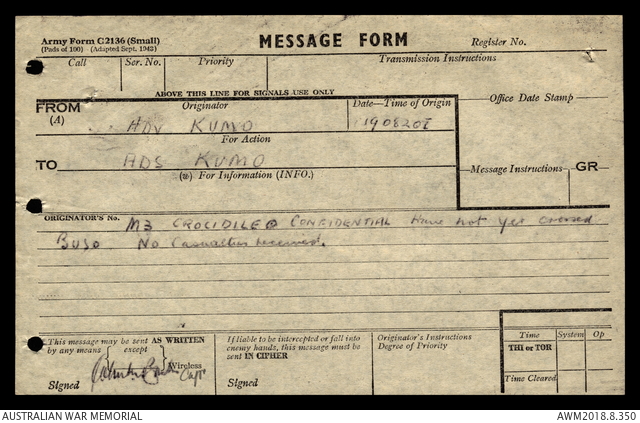 Army Form C2136 (Small)
(Pads of 100) (Adapted Sept. 1942)
MESSAGE FORM
Register No.
Call Ser. No. Priority Transmission Instructions
ABOVE THIS LINE FOR SIGNALS USE ONLY
FROM Originator Date—Time of Origin Office Date Stamp
(A) ADV KUMO 190820I
For Action
TO ADS KUMO
(w) For Information (INFO.) Message Instructions GR
ORIGINATOR'S No. M3 CROCIDILE CONFIDENTIAL Have not yet crossed
BUSO No Casualties received.
This message may be sent AS WRITTEN
by any means except
Wireless
Signed Capt
If liable to be intercepted or fall into
enemy hands, this message must be
sent IN CIPHER
Signed
Originator's Instructions
Degree of Priority
Time System Op
THI or TOR
Time Cleared
AUSTRALIAN WAR MEMORIAL AWM2018.8.350